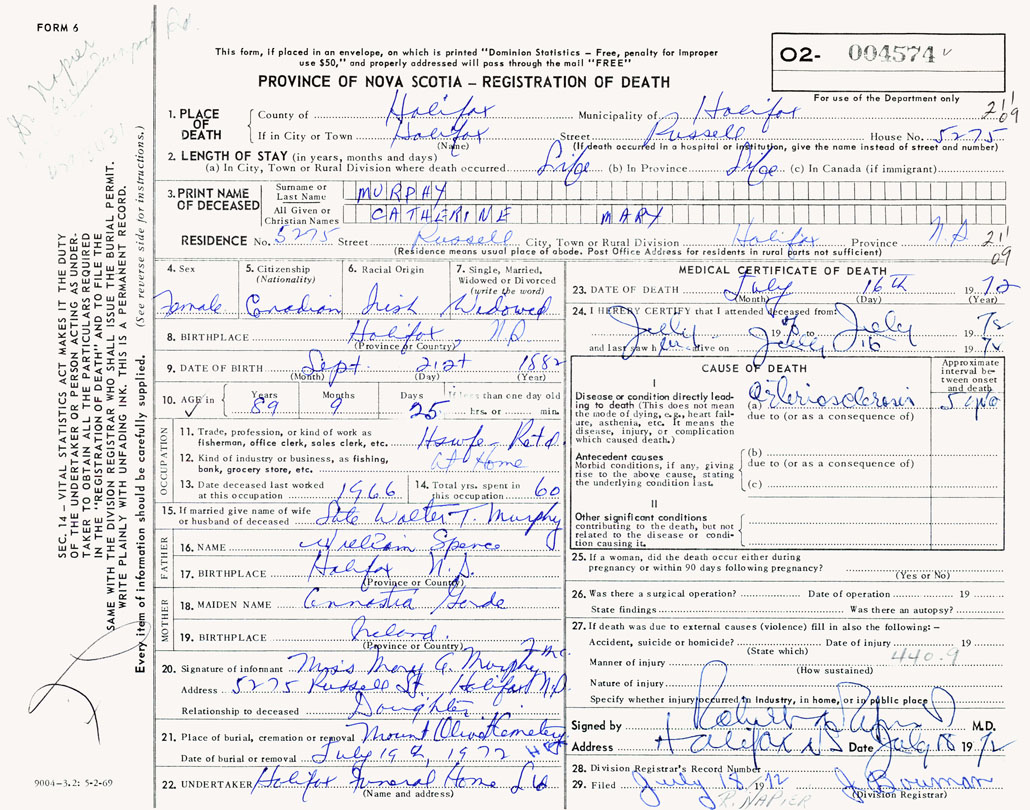 FORM 6
Napier
This form, if placed in an envelope, on which is printed "Dominion Statistics – Free, penalty for improper
use $50," and properly addressed will pass through the mail "FREE"
PROVINCE OF NOVA SCOTIA – REGISTRATION OF DEATH
O2- 004574
For use of the Department only
211
09
1. PLACE OF DEATH
County of Halifax Municipality of Halifax
If in City or Town Halifax Street Russell House No. 5275
(Name) (If death occurred in a hospital or institution, give the name instead of street and number)
2. LENGTH OF STAY (in years, months and days)
(a) In City, Town or Rural Division where death occurred Life (b) In Province Life (c) In Canada (if immigrant)
3. PRINT NAME OF DECEASED
Surname or Last Name MURPHY
All Given or Christian Names CATHERINE MARY
RESIDENCE No. 5275 Street Russell City, Town or Rural Division Halifax Province N.S
211
09
(Residence means usual place of abode. Post Office Address for residents in rural parts not sufficient)
4. Sex Female
5. Citizenship (Nationality) Canadian
6. Racial Origin Irish
7. Single, Married, Widowed or Divorced (write the word) Widowed
8. BIRTHPLACE Halifax N.S
(Province or Country)
9. DATE OF BIRTH Sept 21st 1882
(Month) (Day) (Year)
10. AGE in Years 89 Months 9 Days 25 If less than one day old hrs. or min.
OCCUPATION
11. Trade, profession, or kind of work as fisherman, office clerk, sales clerk, etc. Hswfe - Retd.
12. Kind of industry or business, as fishing, bank, grocery store, etc. At Home
13. Date deceased last worked at this occupation 1966
14. Total yrs. spent in this occupation 60
15. If married give name of wife or husband of deceased Late Walter T. Murphy
FATHER
16. NAME William Spence
17. BIRTHPLACE Halifax N.S.
(Province or Country)
MOTHER
18. MAIDEN NAME
19. BIRTHPLACE Ireland.
(Province or Country)
20. Signature of informant Miss Mary A. Murphy
Address 5275 Russell St. Halifax N.S.
Relationship to deceased Daughter
21. Place of burial, cremation or removal Mount Olivet Cemetery
Date of burial or removal July 19th, 1972
22. UNDERTAKER Halifax Funeral Home Ltd
(Name and address)
MEDICAL CERTIFICATE OF DEATH
23. DATE OF DEATH July 16th 1972
(Month) (Day) (Year)
24. I HEREBY CERTIFY that I attended deceased from:
July 19 to July 1972
and last saw h alive on July 16 1972
CAUSE OF DEATH
Approximate interval between onset and death
I
Disease or condition directly leading to death (This does not mean the mode of dying, e.g., heart failure, asthenia, etc. It means the disease, injury, or complication which caused death.)
(a) Arteriosclerosis
due to (or as a consequence of)
Antecedent causes
Morbid conditions, if any, giving rise to the above cause, stating the underlying condition last.
(b)
due to (or as a consequence of)
(c)
II
Other significant conditions contributing to the death, but not related to the disease or condition causing it.
25. If a woman, did the death occur either during
pregnancy or within 90 days following pregnancy?
(Yes or No)
26. Was there a surgical operation? Date of operation 19
State findings Was there an autopsy?
27. If death was due to external causes (violence) fill in also the following: –
Accident, suicide or homicide? Date of injury 19
(State which)
440.9
Manner of injury
(How sustained)
Nature of injury
Specify whether injury occurred in Industry, in home, or in public place
Signed by M.D.
Address Halifax NS Date July 18 1972
28. Division Registrar's Record Number
29. Filed July 18 1972 J. Bowman
(Division Registrar)
R. NAPIER
SEC. 14 – VITAL STATISTICS ACT MAKES IT THE DUTY
OF THE UNDERTAKER OR PERSON ACTING AS UNDER-
TAKER TO OBTAIN ALL THE PARTICULARS REQUIRED
IN THE "REGISTRATION OF DEATH" AND TO FILE THE
SAME WITH THE DIVISION REGISTRAR WHO SHALL ISSUE THE BURIAL PERMIT.
WRITE PLAINLY WITH UNFADING INK. THIS IS A PERMANENT RECORD.
Every item of information should be carefully supplied. (See reverse side for instructions.)
9004-3.2: 5-2-69